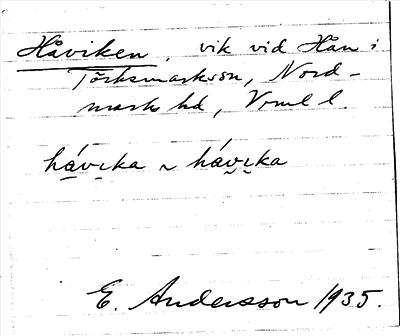 Håviken, vik vid Hån i
Töcksmarks sn, Nord-
marks hd, Vrml l.
hávɩka ~ hávɩka
E. Andersson 1935.